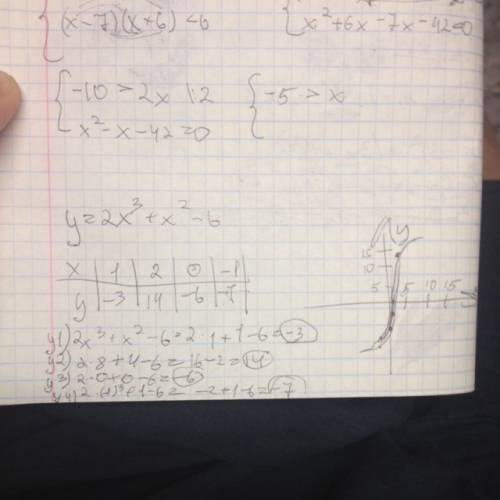 (x-7)(x+6)<6
x²+6x-7x-42=0
-10>2x |:2
-5>x
x²-x-42=0
y=2x³+x²-6
x | 1 | 2 | 0 | -1
y | -3 | 14 | -6 | -7
y1) 2x³+x²-6=2·1+1-6=-3
y2) 2·8+4-6=16-2=14
y3) 2·0+0-6=-6
y4) 2·(-1)³+1-6=-2+1-6=-7
y
15
10
5
5 10 15